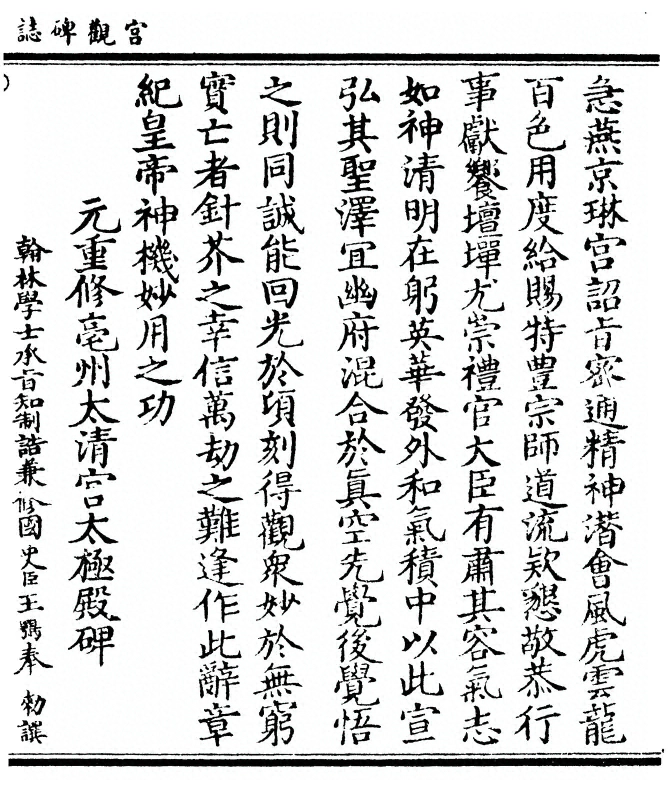 宮觀碑誌
急燕京琳宮詔旨密通精神潛會風虎雲龍
百色用度給賜特豐宗師道流欵懇敬恭行
事獻饗壇墠尤崇禮官大臣有肅其容氣志
如神清明在躬英華發外和氣積中以此宣
弘其聖澤宜幽府混合於眞空先覺後覺悟
之則同誠能回光於頃刻得觀衆妙於無窮
寳亡者針芥之幸信萬劫之難逢作此辭章
紀皇帝神機妙用之功
元重修亳州太清宮太極殿碑
翰林學士承旨知制誥兼修國史臣王鶚奉勅譔